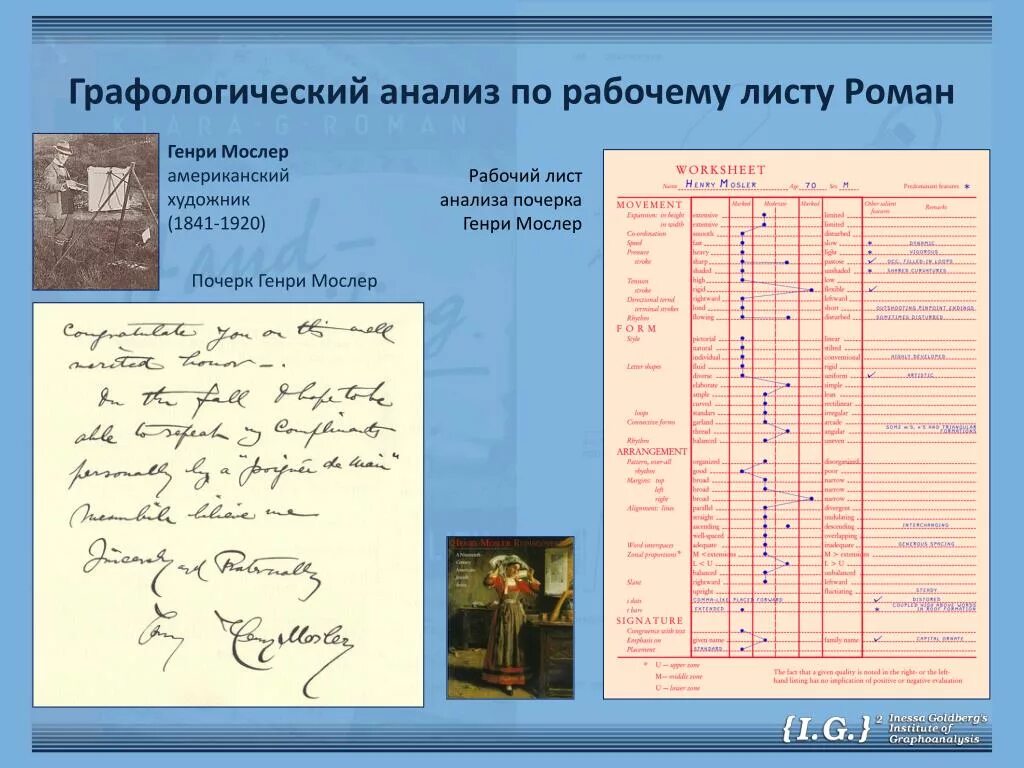 Графологический анализ по рабочему листу Роман
KLARA G ROMAN
Генри Мослер
американский
художник
(1841-1920)
Рабочий лист
анализа почерка
Генри Мослер
Почерк Генри Мослер
Congratulate you on this well
merited honor —.
In the fall I hope to be
able to repeat my Compliments
personally by a "poignée de main"
Meanwhile believe me
Sincerely and Fraternally
Henry Mosler
WORKSHEET
Name HENRY MOSLER Age 70 Sex M Predominant features *
MOVEMENT Marked Moderate Marked Other salient features Remarks
Expansion: in height extensive limited
in width extensive limited
Co-ordination smooth disturbed
Speed fast slow * DYNAMIC
Pressure heavy light * VIGOROUS
stroke sharp pastose ✓ OCC. FILLED-IN LOOPS
shaded unshaded * SHARED CURVATURES
Tension high low
stroke rigid flexible ✓
Directional trend rightward leftward
terminal strokes long short OUTSHOOTING PINPOINT ENDINGS
Rhythm flowing disturbed SOMETIMES DISTURBED
FORM
Style pictorial linear
natural stilted
individual conventional HIGHLY DEVELOPED
Letter shapes fluid rigid
diverse uniform ✓ ARTISTIC
elaborate simple
ample lean
curved rectilinear
loops irregular
Connective forms garland arcade
thread angular SOME W'S, X'S HAD TRIANGULAR FORMATIONS
Rhythm balanced uneven
ARRANGEMENT
Pattern, over-all organized disorganized
rhythm good poor
Margins: top broad narrow
left broad narrow
right broad narrow
Alignment: lines parallel divergent
straight undulating
ascending descending INTERCHANGING
well-spaced overlapping
Word interspaces adequate inadequate GENEROUS SPACING
Zonal proportions* M < extension M > extension
L < U L > U
balanced unbalanced
Slant rightward leftward
upright fluctuating STEADY
i dots COMMA-LIKE PLACED FORWARD ✓
t bars EXTENDED * COUPLED WORDS IN ROOF FORMATION
SIGNATURE
Congruence with text
Emphasis on given name family name ✓ CAPITAL ORNATE
Placement STANDARD
* U — upper zone
M— middle zone
U — lower zone
The fact that a given quality is noted in the right- or the left-
hand listing has no implication of positive or negative evaluation
A Nineteenth-
Century
American-
Jewish
Artist
{I.G.}² Inessa Goldberg's
Institute of
Graphoanalysis